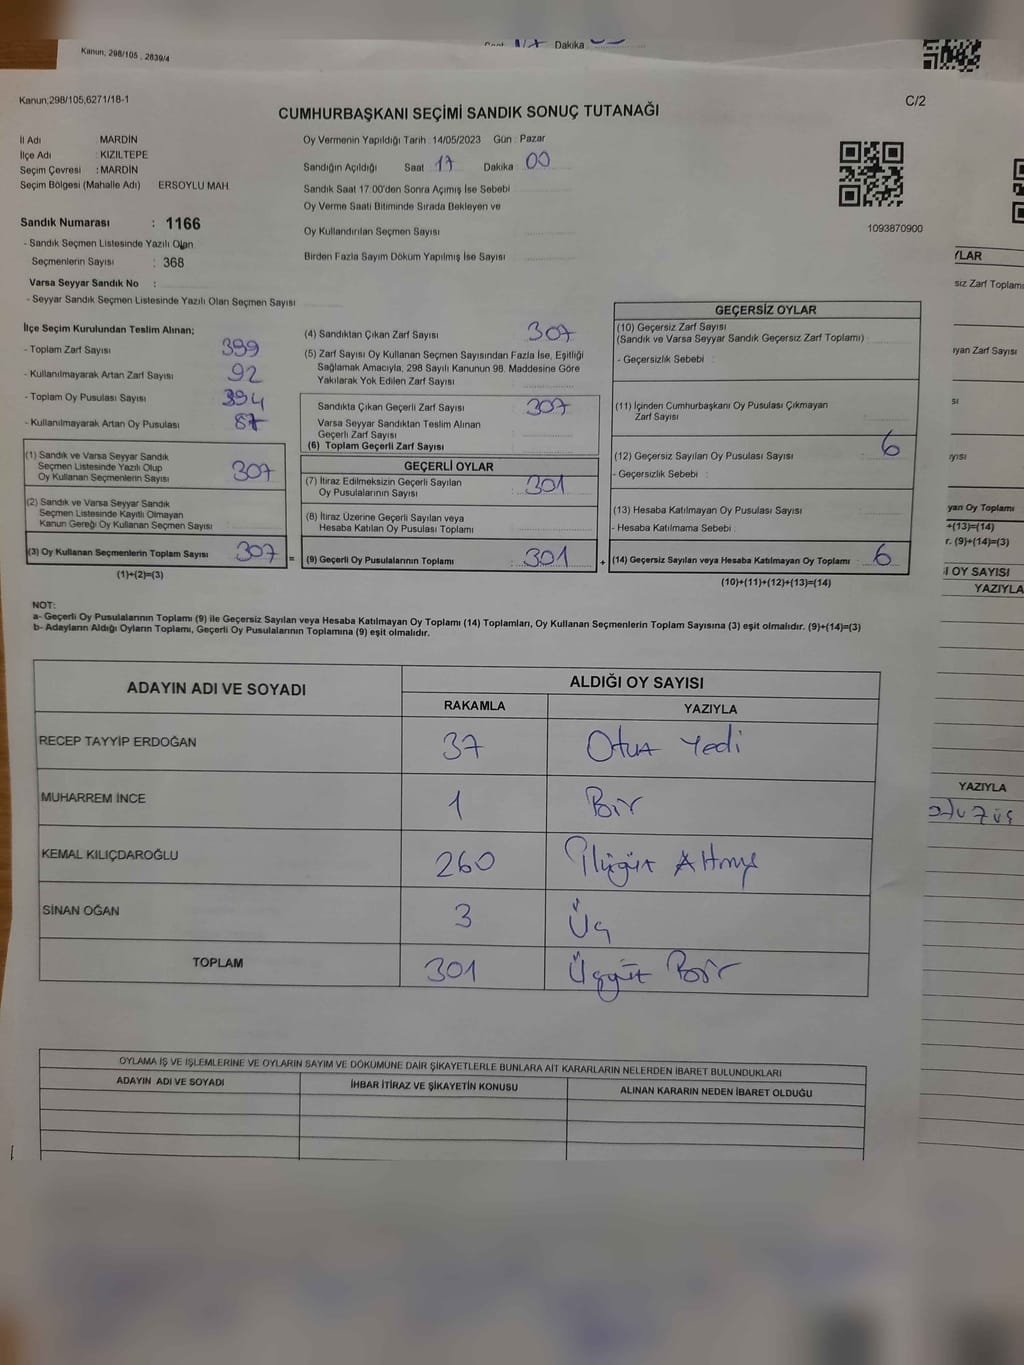 Kanun, 298/105 , 2839/4
Dakika
Kanun,298/105,6271/18-1
C/2
CUMHURBAŞKANI SEÇİMİ SANDIK SONUÇ TUTANAĞI
İl Adı MARDİN
İlçe Adı : KIZILTEPE
Seçim Çevresi : MARDİN
Seçim Bölgesi (Mahalle Adı) ERSOYLU MAH.
Oy Vermenin Yapıldığı Tarih : 14/05/2023 Gün : Pazar
Sandığın Açıldığı Saat 17 Dakika 00
Sandık Saat 17:00'den Sonra Açımış İse Sebebi
Oy Verme Saati Bitiminde Sırada Bekleyen ve
Oy Kullandırılan Seçmen Sayısı
Birden Fazla Sayım Döküm Yapılmış İse Sayısı
1093870900
Sandık Numarası : 1166
- Sandık Seçmen Listesinde Yazılı Olan
Seçmenlerin Sayısı : 368
Varsa Seyyar Sandık No :
- Seyyar Sandık Seçmen Listesinde Yazılı Olan Seçmen Sayısı
İlçe Seçim Kurulundan Teslim Alınan;
- Toplam Zarf Sayısı 399
- Kullanılmayarak Artan Zarf Sayısı 92
- Toplam Oy Pusulası Sayısı 394
- Kullanılmayarak Artan Oy Pusulası 87
(1) Sandık ve Varsa Seyyar Sandık
Seçmen Listesinde Yazılı Olup
Oy Kullanan Seçmenlerin Sayısı 307
(2) Sandık ve Varsa Seyyar Sandık
Seçmen Listesinde Kayıtlı Olmayan
Kanun Gereği Oy Kullanan Seçmen Sayısı
(3) Oy Kullanan Seçmenlerin Toplam Sayısı 307 =
(1)+(2)=(3)
(4) Sandıktan Çıkan Zarf Sayısı 307
(5) Zarf Sayısı Oy Kullanan Seçmen Sayısından Fazla İse, Eşitliği
Sağlamak Amacıyla, 298 Sayılı Kanunun 98. Maddesine Göre
Yakılarak Yok Edilen Zarf Sayısı
Sandıkta Çıkan Geçerli Zarf Sayısı 307
Varsa Seyyar Sandıktan Teslim Alınan
Geçerli Zarf Sayısı
(6) Toplam Geçerli Zarf Sayısı
GEÇERLİ OYLAR
(7) İtiraz Edilmeksizin Geçerli Sayılan
Oy Pusulalarının Sayısı : 301
(8) İtiraz Üzerine Geçerli Sayılan veya
Hesaba Katılan Oy Pusulası Toplamı
(9) Geçerli Oy Pusulalarının Toplamı : 301 +
GEÇERSİZ OYLAR
(10) Geçersiz Zarf Sayısı
(Sandık ve Varsa Seyyar Sandık Geçersiz Zarf Toplamı) :
- Geçersizlik Sebebi :
(11) İçinden Cumhurbaşkanı Oy Pusulası Çıkmayan
Zarf Sayısı
(12) Geçersiz Sayılan Oy Pusulası Sayısı : 6
- Geçersizlik Sebebi :
(13) Hesaba Katılmayan Oy Pusulası Sayısı
- Hesaba Katılmama Sebebi :
(14) Geçersiz Sayılan veya Hesaba Katılmayan Oy Toplamı : 6
(10)+(11)+(12)+(13)=(14)
NOT:
a- Geçerli Oy Pusulalarının Toplamı (9) ile Geçersiz Sayılan veya Hesaba Katılmayan Oy Toplamı (14) Toplamları, Oy Kullanan Seçmenlerin Toplam Sayısına (3) eşit olmalıdır. (9)+(14)=(3)
b- Adayların Aldığı Oyların Toplamı, Geçerli Oy Pusulalarının Toplamına (9) eşit olmalıdır.
ADAYIN ADI VE SOYADI
ALDIĞI OY SAYISI
RAKAMLA YAZIYLA
RECEP TAYYİP ERDOĞAN 37 Otuz Yedi
MUHARREM İNCE 1 Bir
KEMAL KILIÇDAROĞLU 260 İkiyüz Altmış
SİNAN OĞAN 3 Üç
TOPLAM 301 Üçyüz Bir
OYLAMA İŞ VE İŞLEMLERİNE VE OYLARIN SAYIM VE DÖKÜMÜNE DAİR ŞİKAYETLERLE BUNLARA AİT KARARLARIN NELERDEN İBARET BULUNDUKLARI
ADAYIN ADI VE SOYADI İHBAR İTİRAZ VE ŞİKAYETİN KONUSU ALINAN KARARIN NEDEN İBARET OLDUĞU
YLAR
siz Zarf Toplamı
yan Zarf Sayısı
yan Oy Toplamı
+(13)=(14)
r. (9)+(14)=(3)
I OY SAYISI
YAZIYLA
YAZIYLA